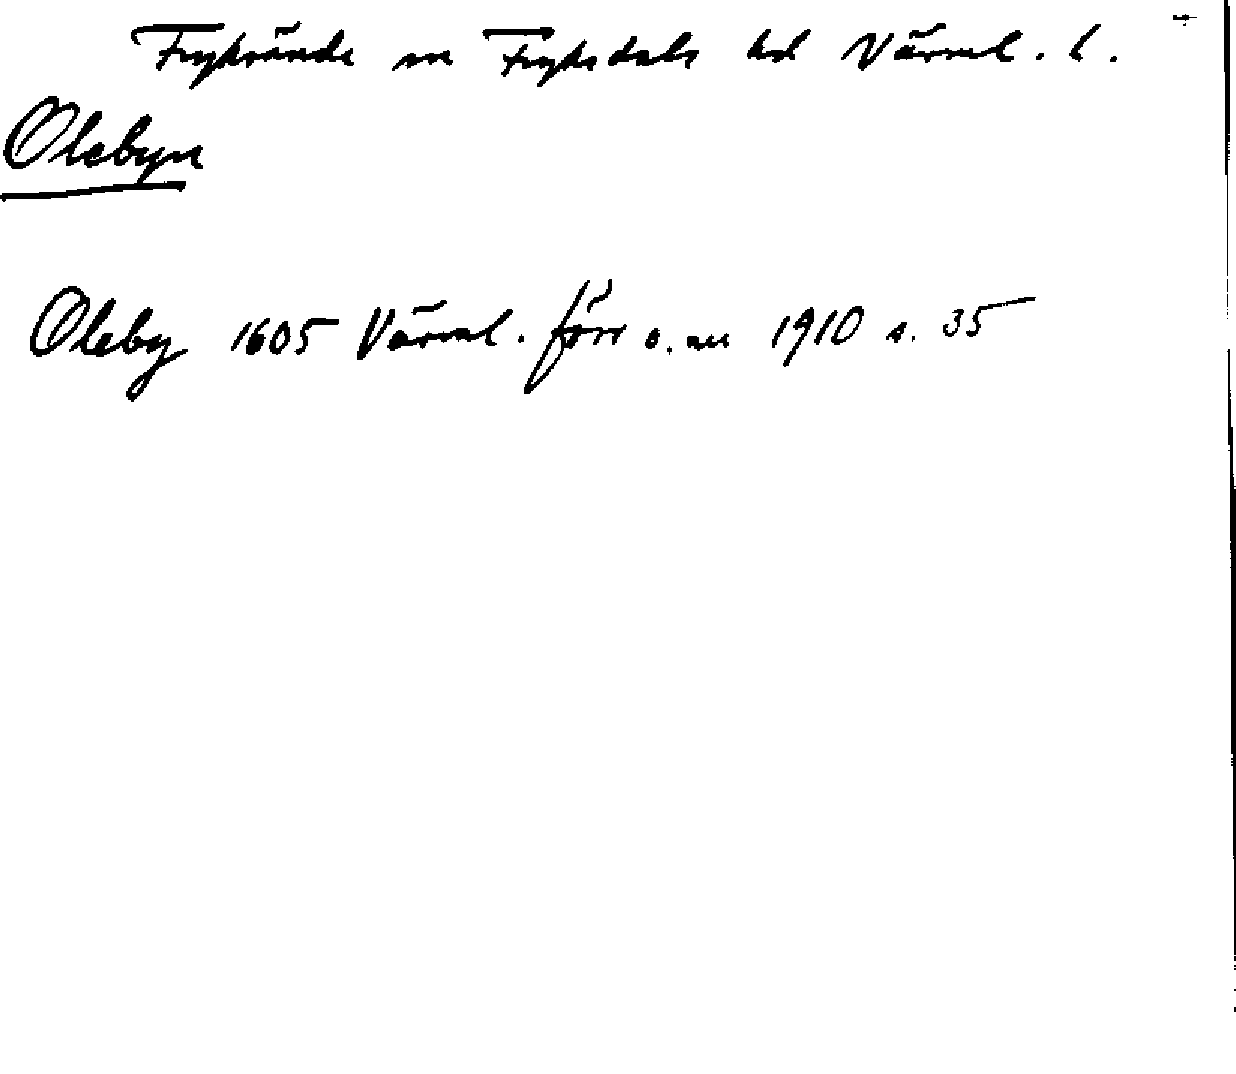 Fryksände sn Fryksdals hd Värml. l.
Olebyn
Oleby 1605 Värml. förr o. nu 1910 s. 35